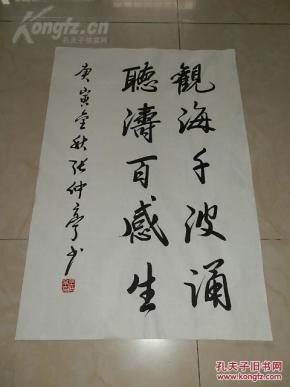 觀海千波涌
聽濤百感生
庚寅金秋张仲亭书
Kongfz.com
孔夫子旧书网
孔夫子旧书网